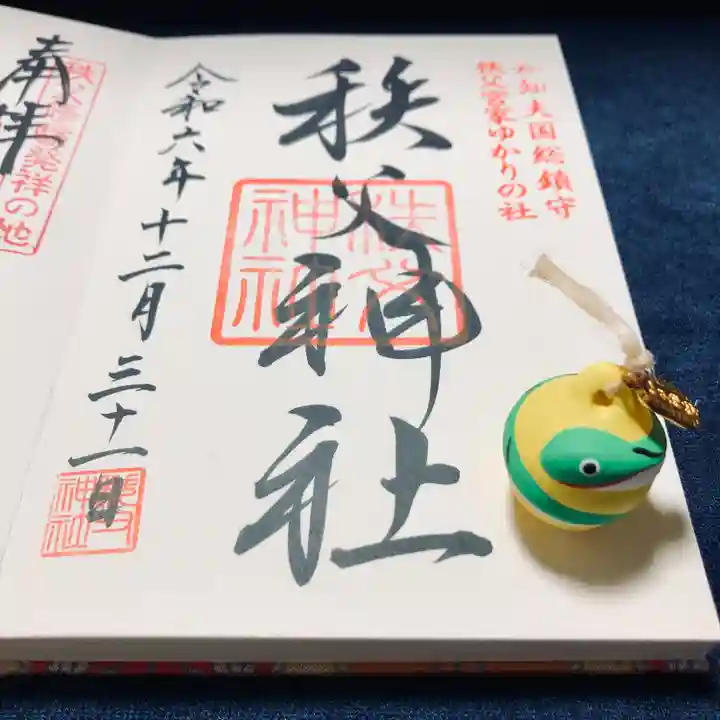 知知夫国総鎮守
秩父宮家ゆかりの社
秩父神社
秩父神社
令和六年十二月三十一日
神社
奉拝
発祥の地